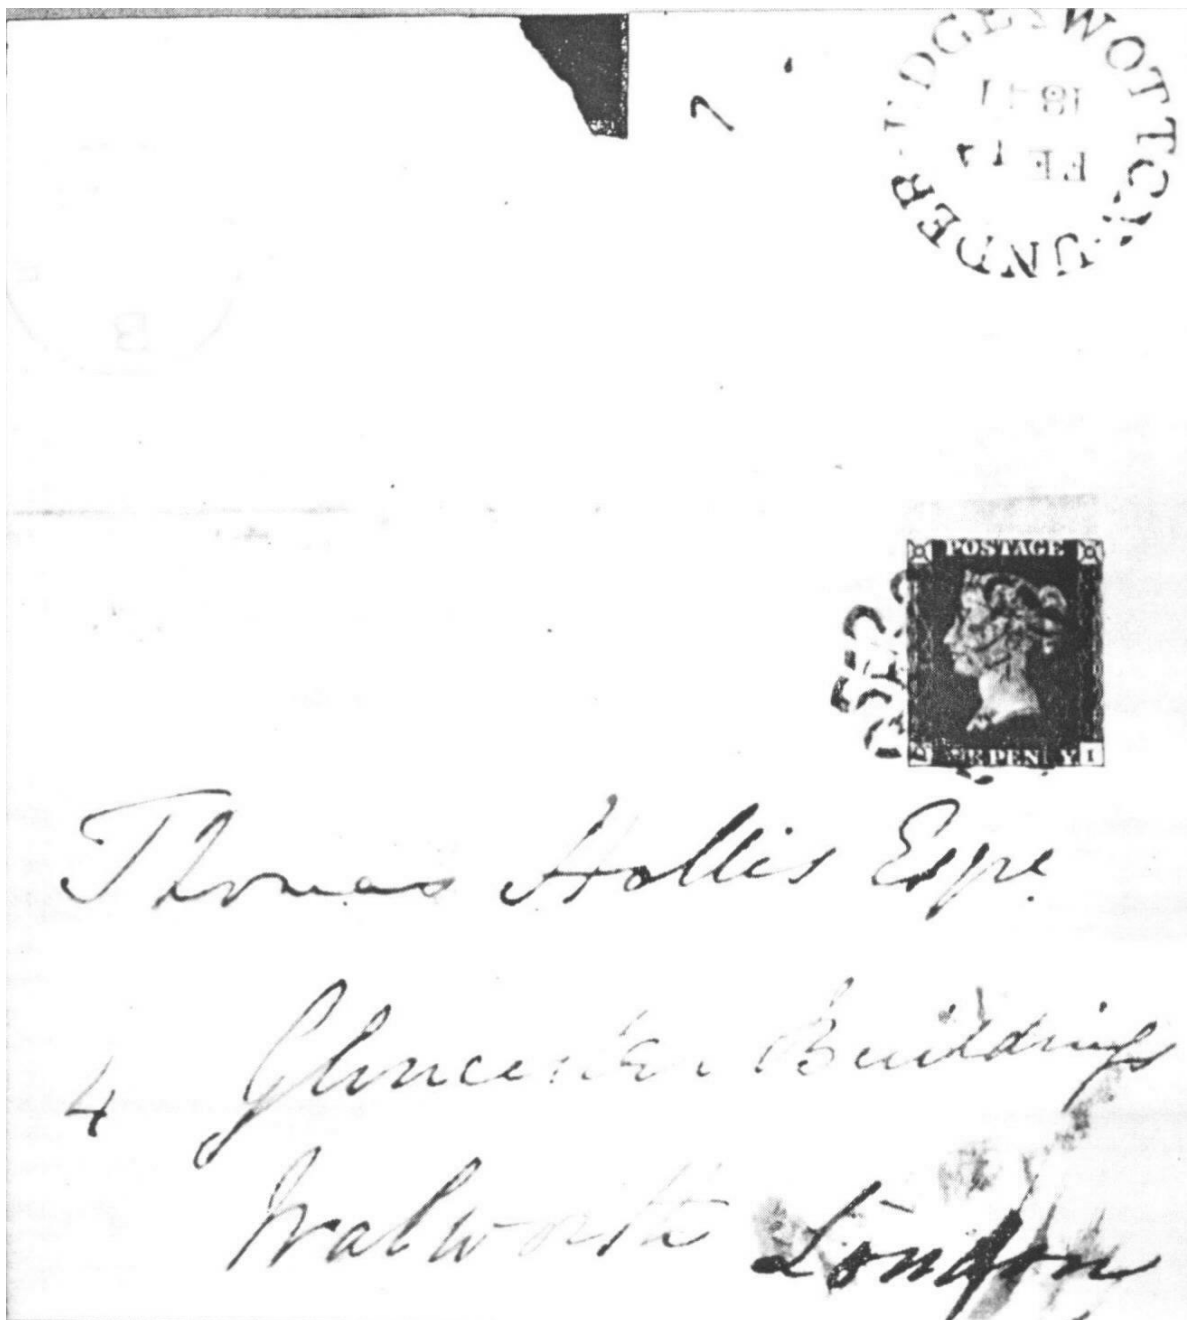 WOTTON-UNDER-EDGE
FE 1
1841
POSTAGE
ONE PENNY
I
Thomas Hollis Esqre
4 Gloucester Buildings
Walworth London